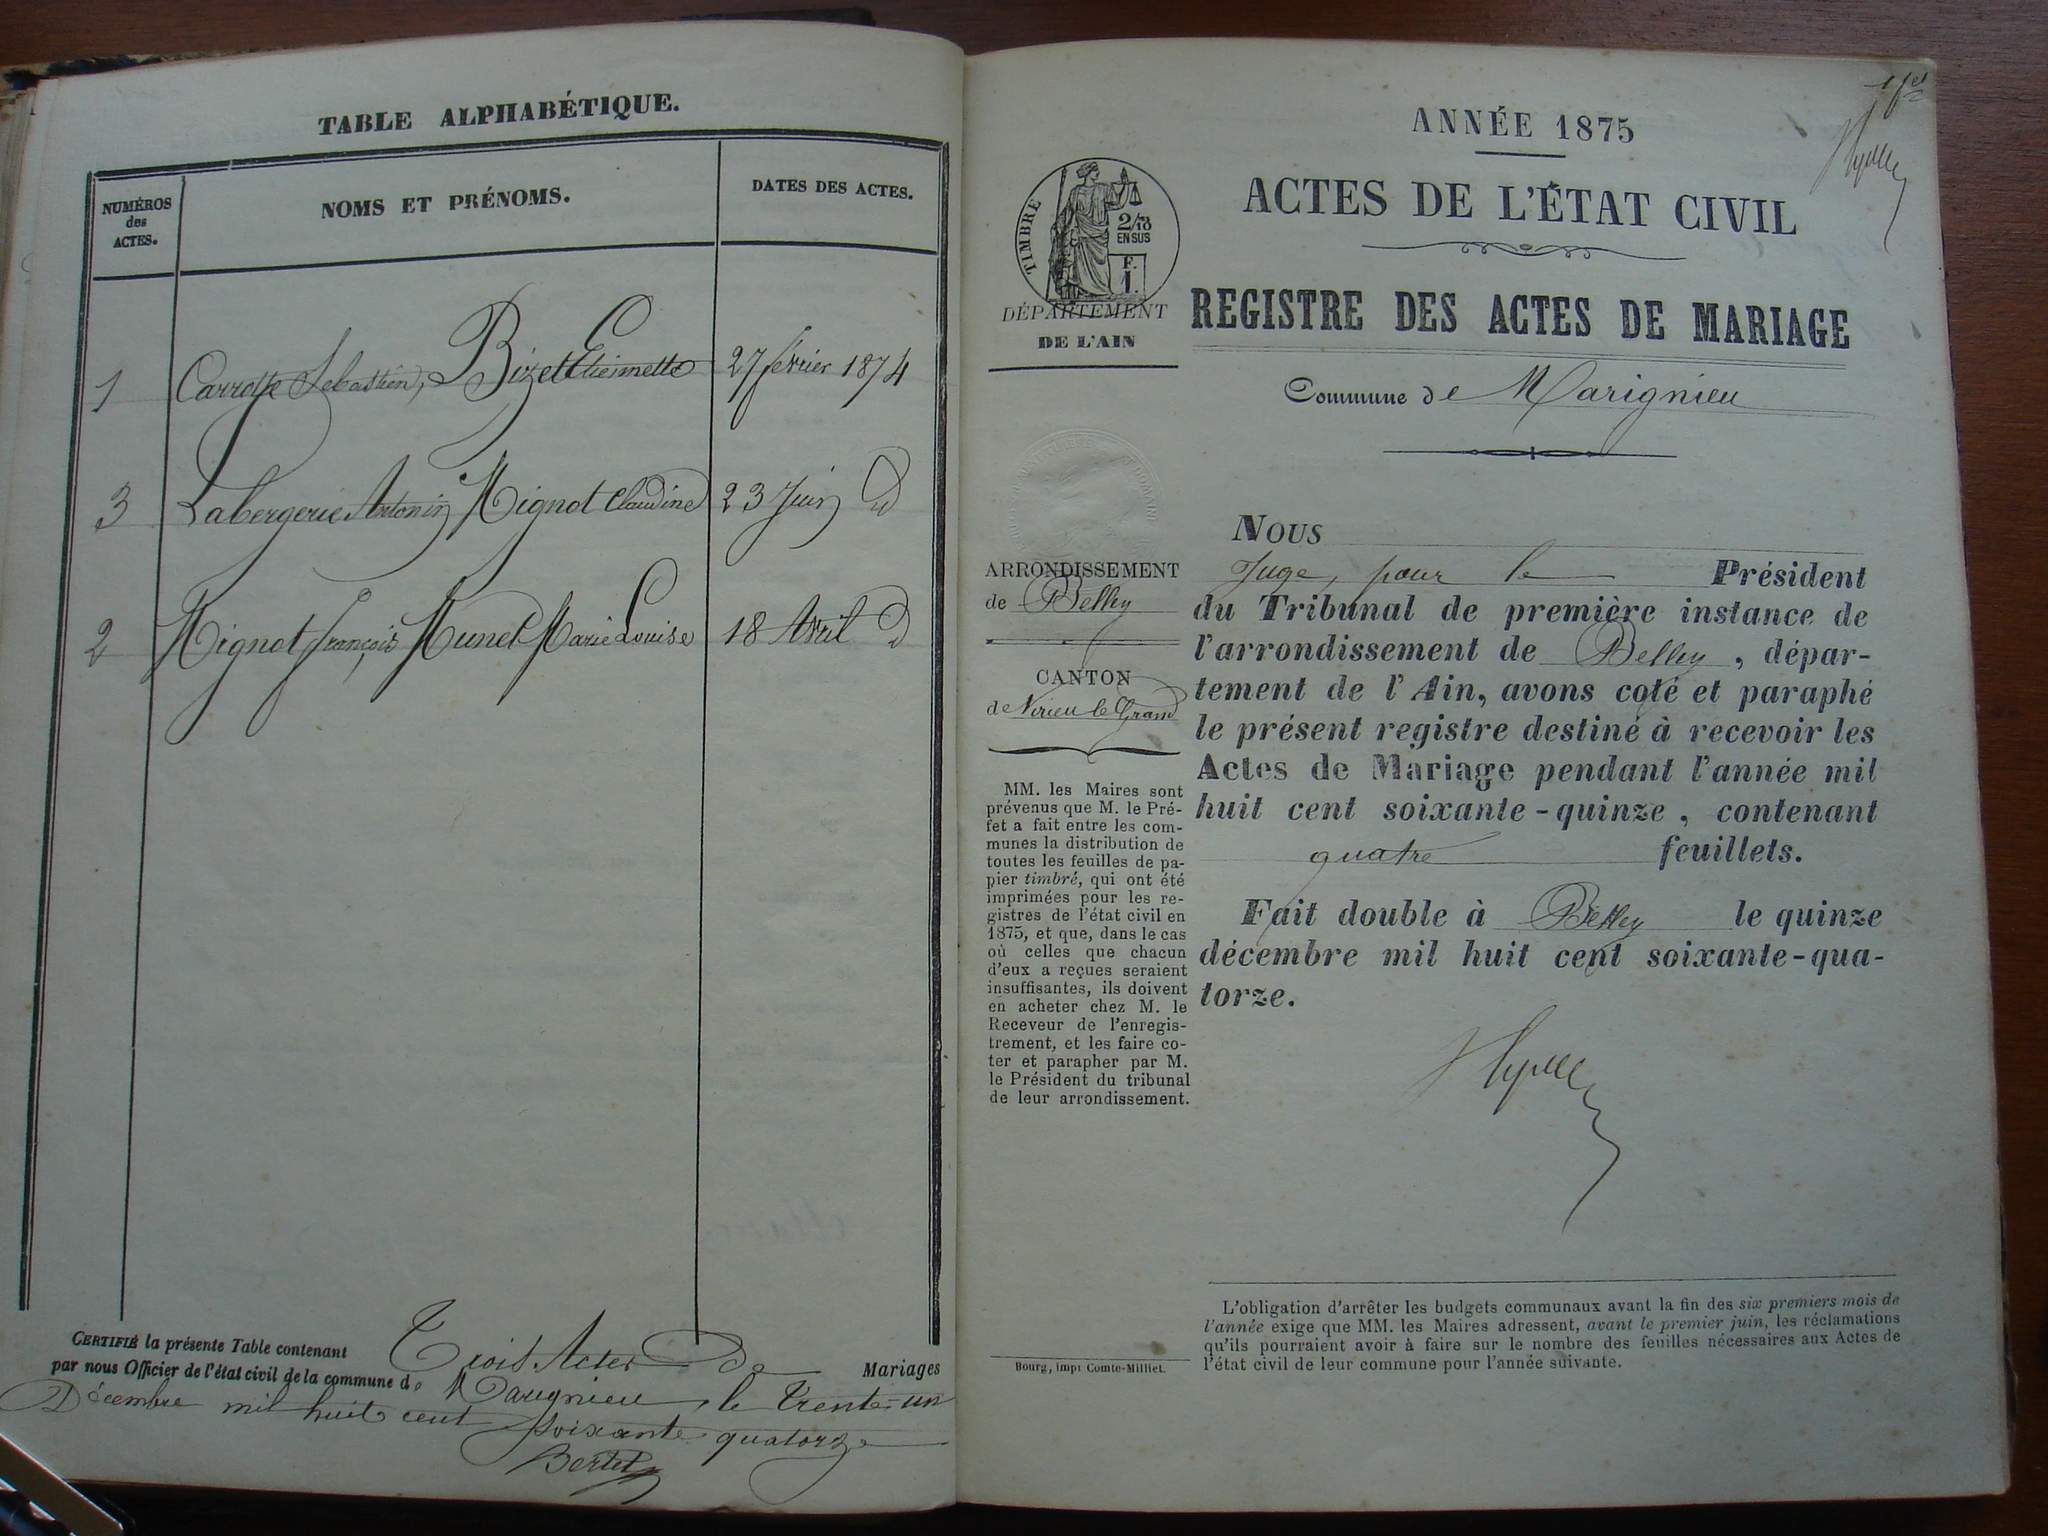 TABLE ALPHABÉTIQUE.
NUMÉROS
des
ACTES.
NOMS ET PRÉNOMS.
DATES DES ACTES.
1 Sebastien, Bizet Etiennette 27 février 1874
3 Labergerie Antonin Mignot Claudine 23 Juin d
2 Mignot François Munet Marie Louise 18 Avril d
CERTIFIÉ la présente Table contenant Trois Actes de Mariages
par nous Officier de l'état civil de la commune de Marignieu, le Trente-un
Décembre mil huit cent soixante quatorze
Bertet
1er
ANNÉE 1875
ACTES DE L'ÉTAT CIVIL
REGISTRE DES ACTES DE MARIAGE
Commune de Marignieu
TIMBRE
2/10
EN SUS
F.
1.
DÉPARTEMENT
DE L'AIN
ARRONDISSEMENT
de Belley
CANTON
de Virieu le Grand
MM. les Maires sont
prévenus que M. le Pré-
fet a fait entre les com-
munes la distribution de
toutes les feuilles de pa-
pier timbré, qui ont été
imprimées pour les re-
gistres de l'état civil en
1875, et que, dans le cas
où celles que chacun
d'eux a reçues seraient
insuffisantes, ils doivent
en acheter chez M. le
Receveur de l'enregis-
trement, et les faire co-
ter et parapher par M.
le Président du tribunal
de leur arrondissement.
Bourg, impr Comte-Milliet.
NOUS
Juge, pour le Président
du Tribunal de première instance de
l'arrondissement de Belley, dépar-
tement de l'Ain, avons coté et paraphé
le présent registre destiné à recevoir les
Actes de Mariage pendant l'année mil
huit cent soixante-quinze, contenant
quatre feuillets.
Fait double à Belley le quinze
décembre mil huit cent soixante-qua-
torze.
L'obligation d'arrêter les budgets communaux avant la fin des six premiers mois de
l'année exige que MM. les Maires adressent, avant le premier juin, les réclamations
qu'ils pourraient avoir à faire sur le nombre des feuilles nécessaires aux Actes de
l'état civil de leur commune pour l'année suivante.